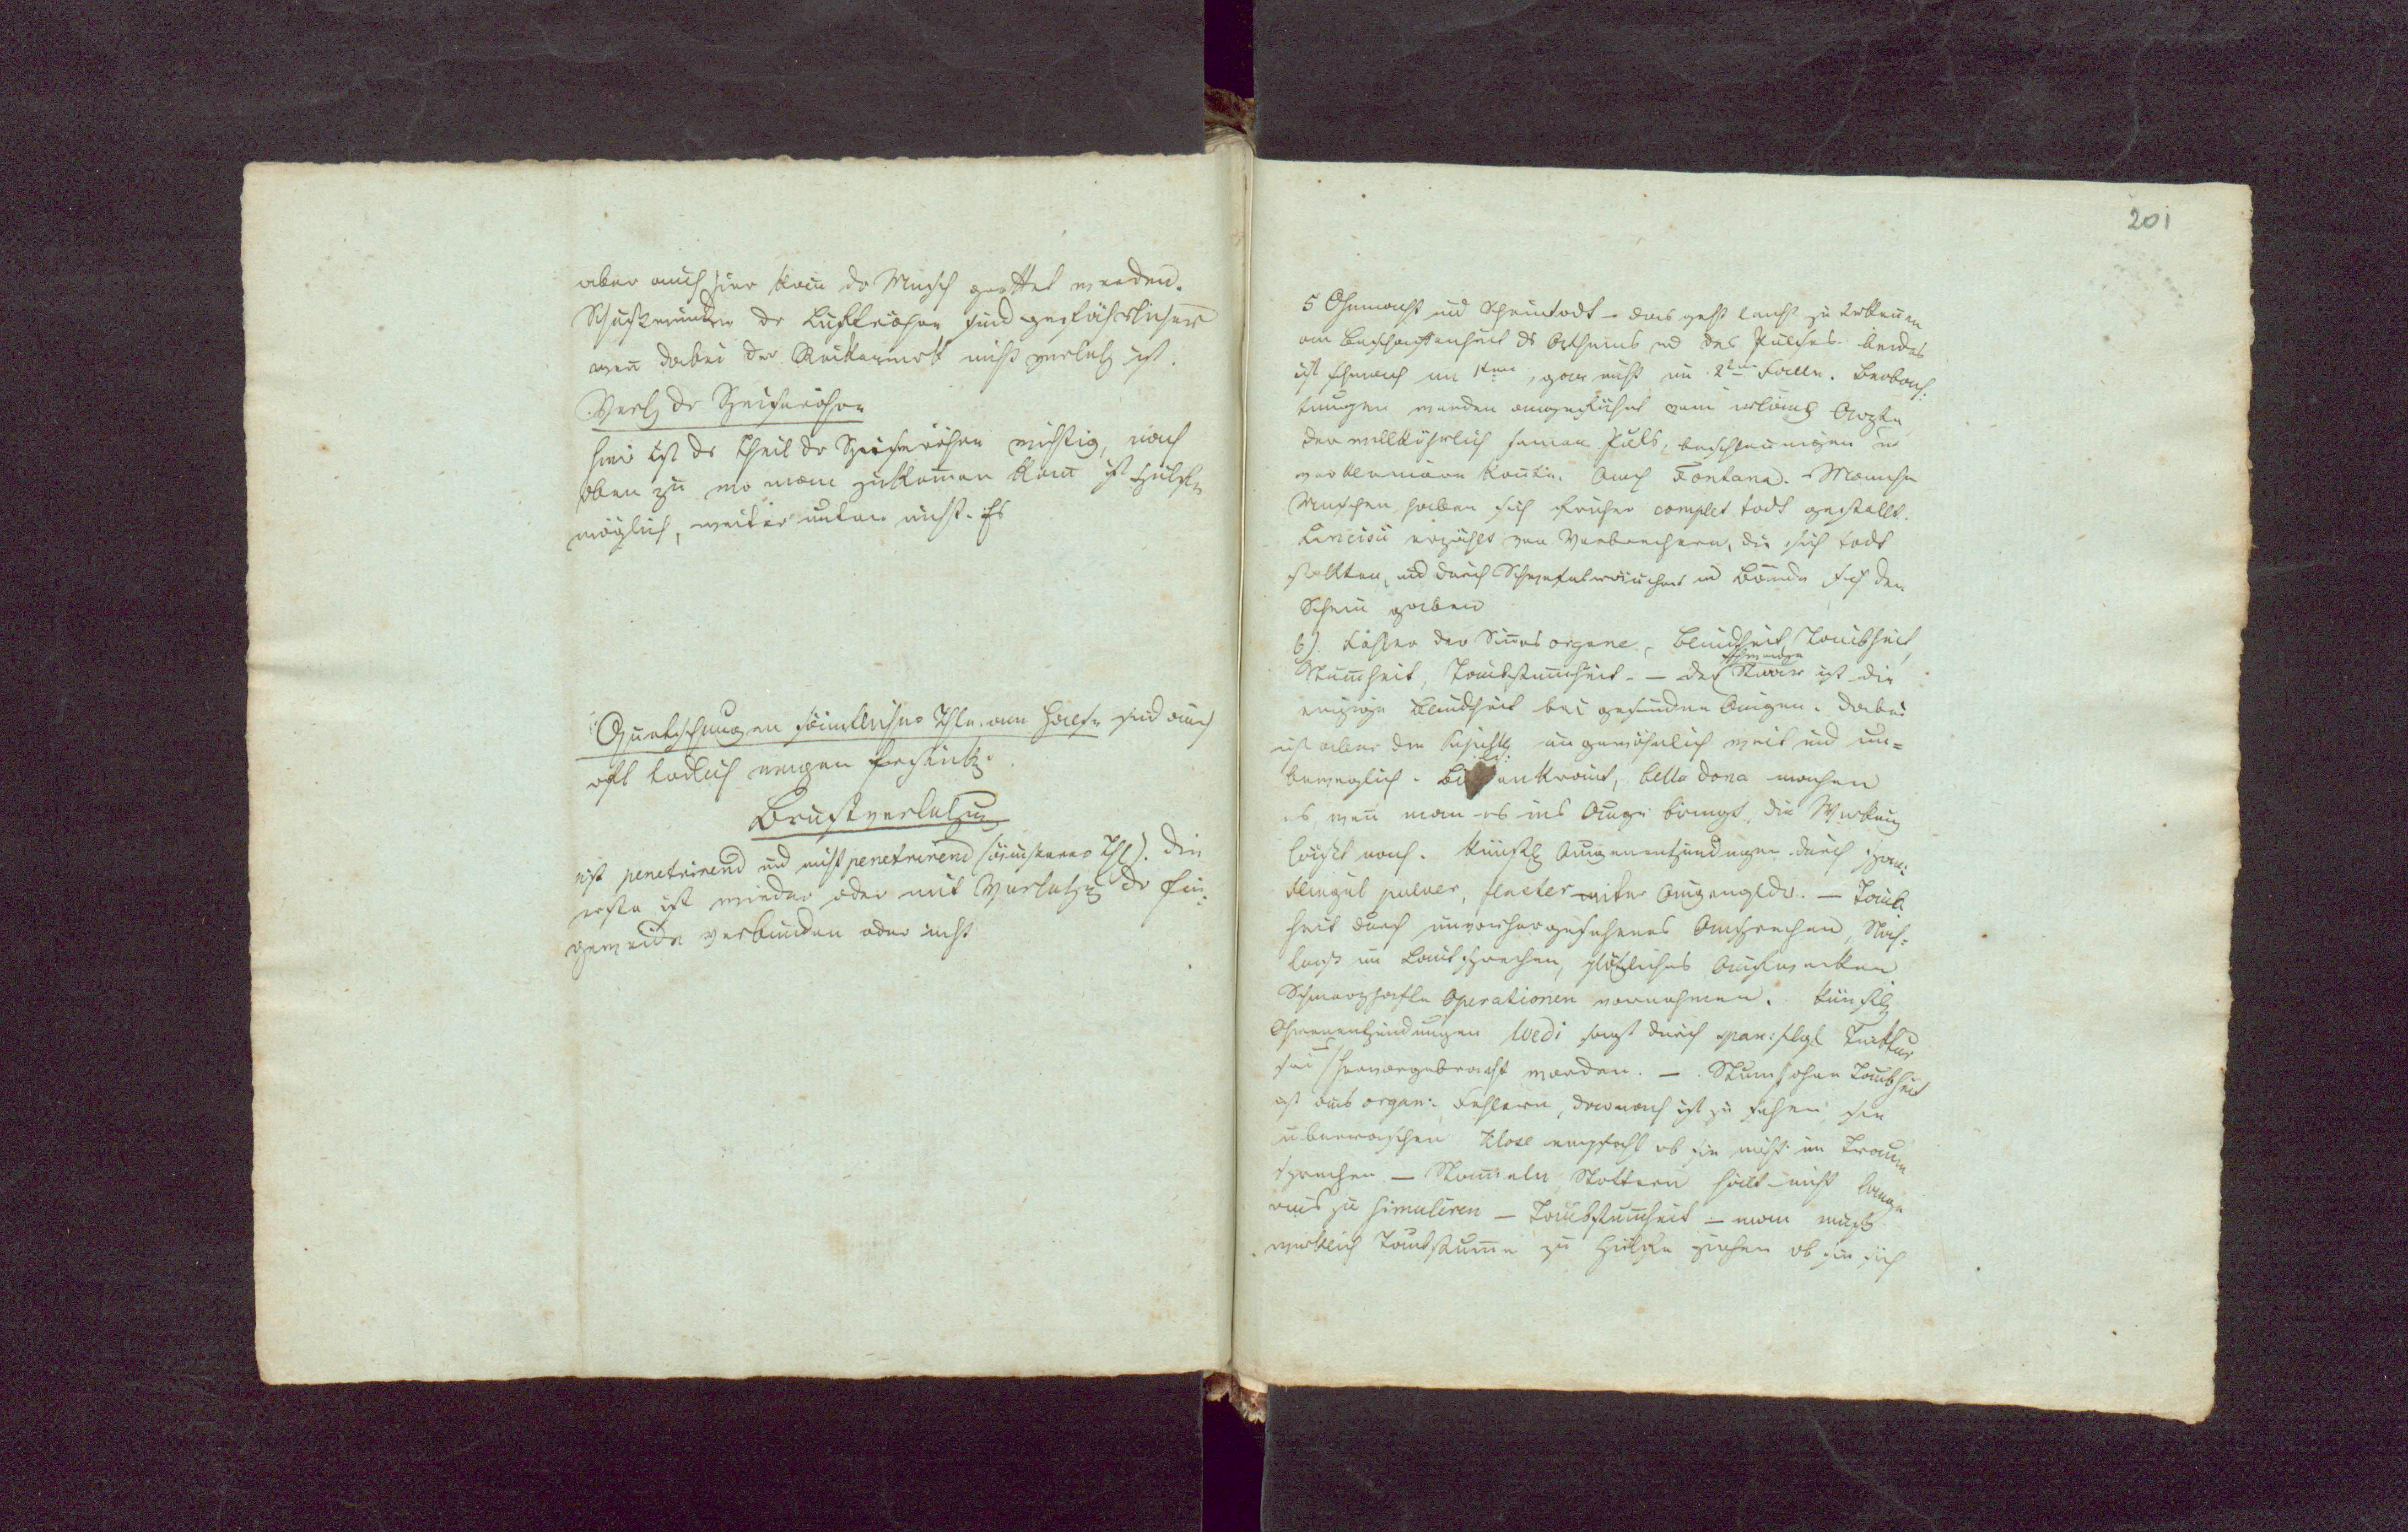 aber auch hier kan̄ dr Mensch gerettet werden.
Schußwunden dr Luftröhre sind gefährlicher
wen̄ dabei der Rückenmark nicht verletz ist.
Verlz dr Speiseröhre
hier ist dr Theil dr Speiseröhre wichtig, nach
oben zu wo man zukom̄en kan̄ ist Hülfe
möglich, weiter unten nicht. Es
Quetschungen säm̄tlicher Thle am Halse sind auch
oft tödlich wegen
Brustverletzung
ist penetrirend und nicht penetrirend Die
erste ist wieder oder mit Verletzg dr Ein:
geweide verbunden oder nicht
201
5 Ohnmacht und Scheintodt – das geht leicht zu erken̄en
an Beschaffenheit ds Athems und des Pulses. beides
ist schwach im 1ten, gar nicht im 2ten Falle. Beobach:
tungen werden angeführt vom Arzte
der willkührlich seinen Puls, beschleunigen u
kon̄te. Auch Fontana. – Manche
Menschen haben sich früher complet todt gestellt.
Lancisii erzählt von Verbrechern, die sich todt
stellten, und durch Schwefelräuchern und Bände sich den
Schein gaben
6) Fehler der Sin̄esorgene, Blindheit, Taubheit,
Stum̄heit, Taubstum̄heit. – der schwarze Staar ist die
einzige Blindheit bei gesunden Augen. dabei
ist aber die ungewöhnlich weit und un=
beweglich. Bilsenkraut, bella dona machen
es, wen̄ man es ins Auge bringt, die Wirkung
läßt nach. Künstlg Augenentzündungen durch span:
fliegen pulver, flaster unter Augenglder. – Taub
heit durch unvorhergesehenes Ansprechen, Nach:
laß im Lautsprechen, plötzliches Aufwecken
Schmerzhafte Operationen vornehmen. Künstlg
Ohrenentzündungen Wedi sagt durch span: flgl Tinktur
sei hervorgebracht worden. – Stum̄h ohne Taubheit
ist aus organ: Fehlern, darnach ist zu sehen, sie
überraschen Klose empfiehlt ob sie nicht im Traume
sprechen – Stam̄eln Stottern hält nicht lange
aus zu simuliren – Taubstum̄heit – man muß
wirklich Taubstum̄e zu Hülfe ziehen ob sie sich